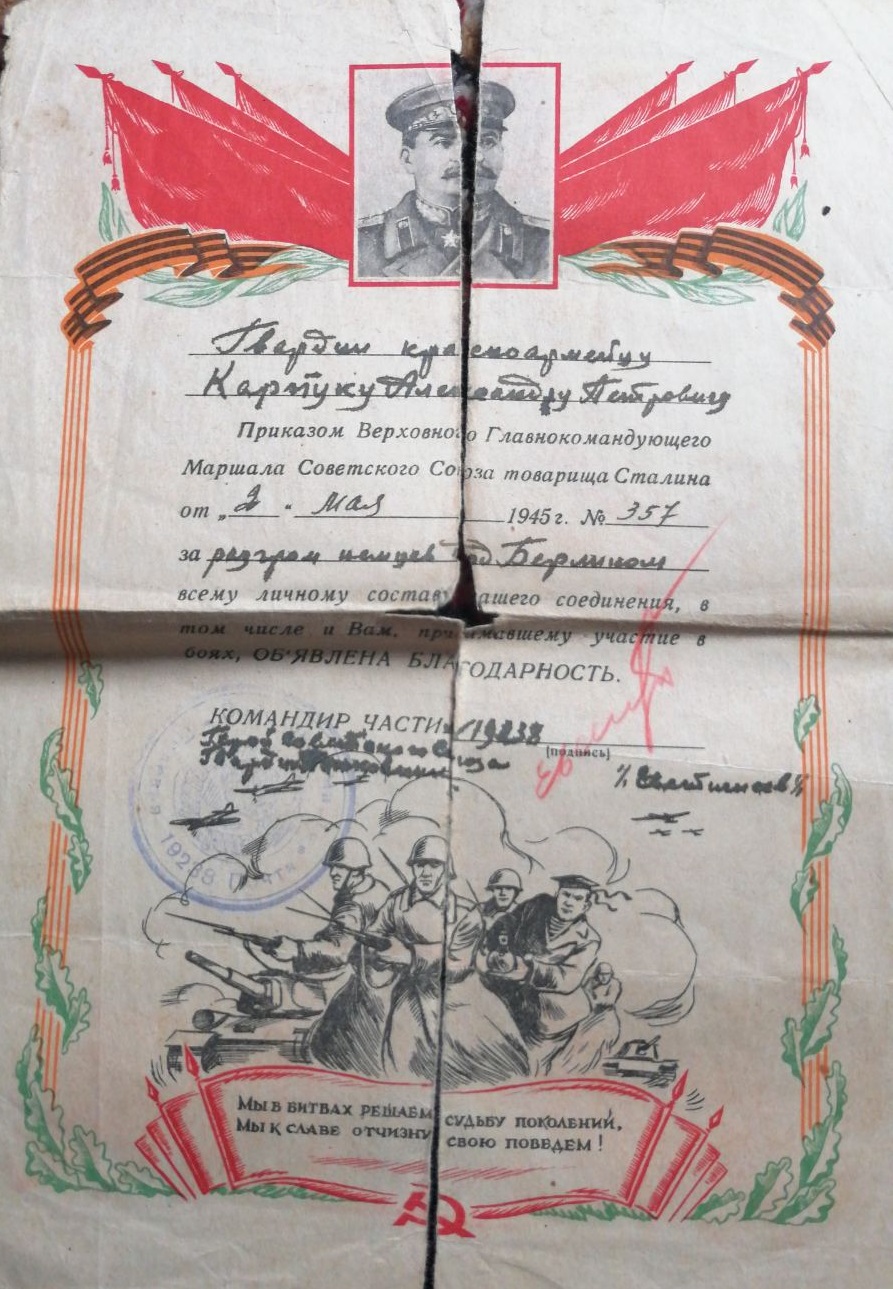 Гвардии красноармейцу
Карпуку Александру Петровичу
Приказом Верховного Главнокомандующего
Маршала Советского Союза товарища Сталина
от „2" мая 1945 г. № 357
за разгром немцев под Берлином
всему личному составу нашего соединения, в
том числе и Вам, принимавшему участие в
боях, ОБ'ЯВЛЕНА БЛАГОДАРНОСТЬ.
КОМАНДИР ЧАСТИ 19238
(подпись)
Герой Советского Союза
Гвардии
19238
Мы в битвах решаем судьбу поколений,
Мы к славе отчизну свою поведем!